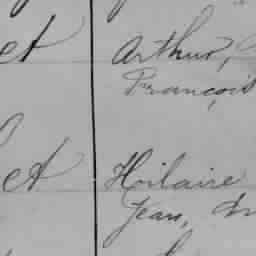 et Arthur,
François
et Hilaire
Jean,